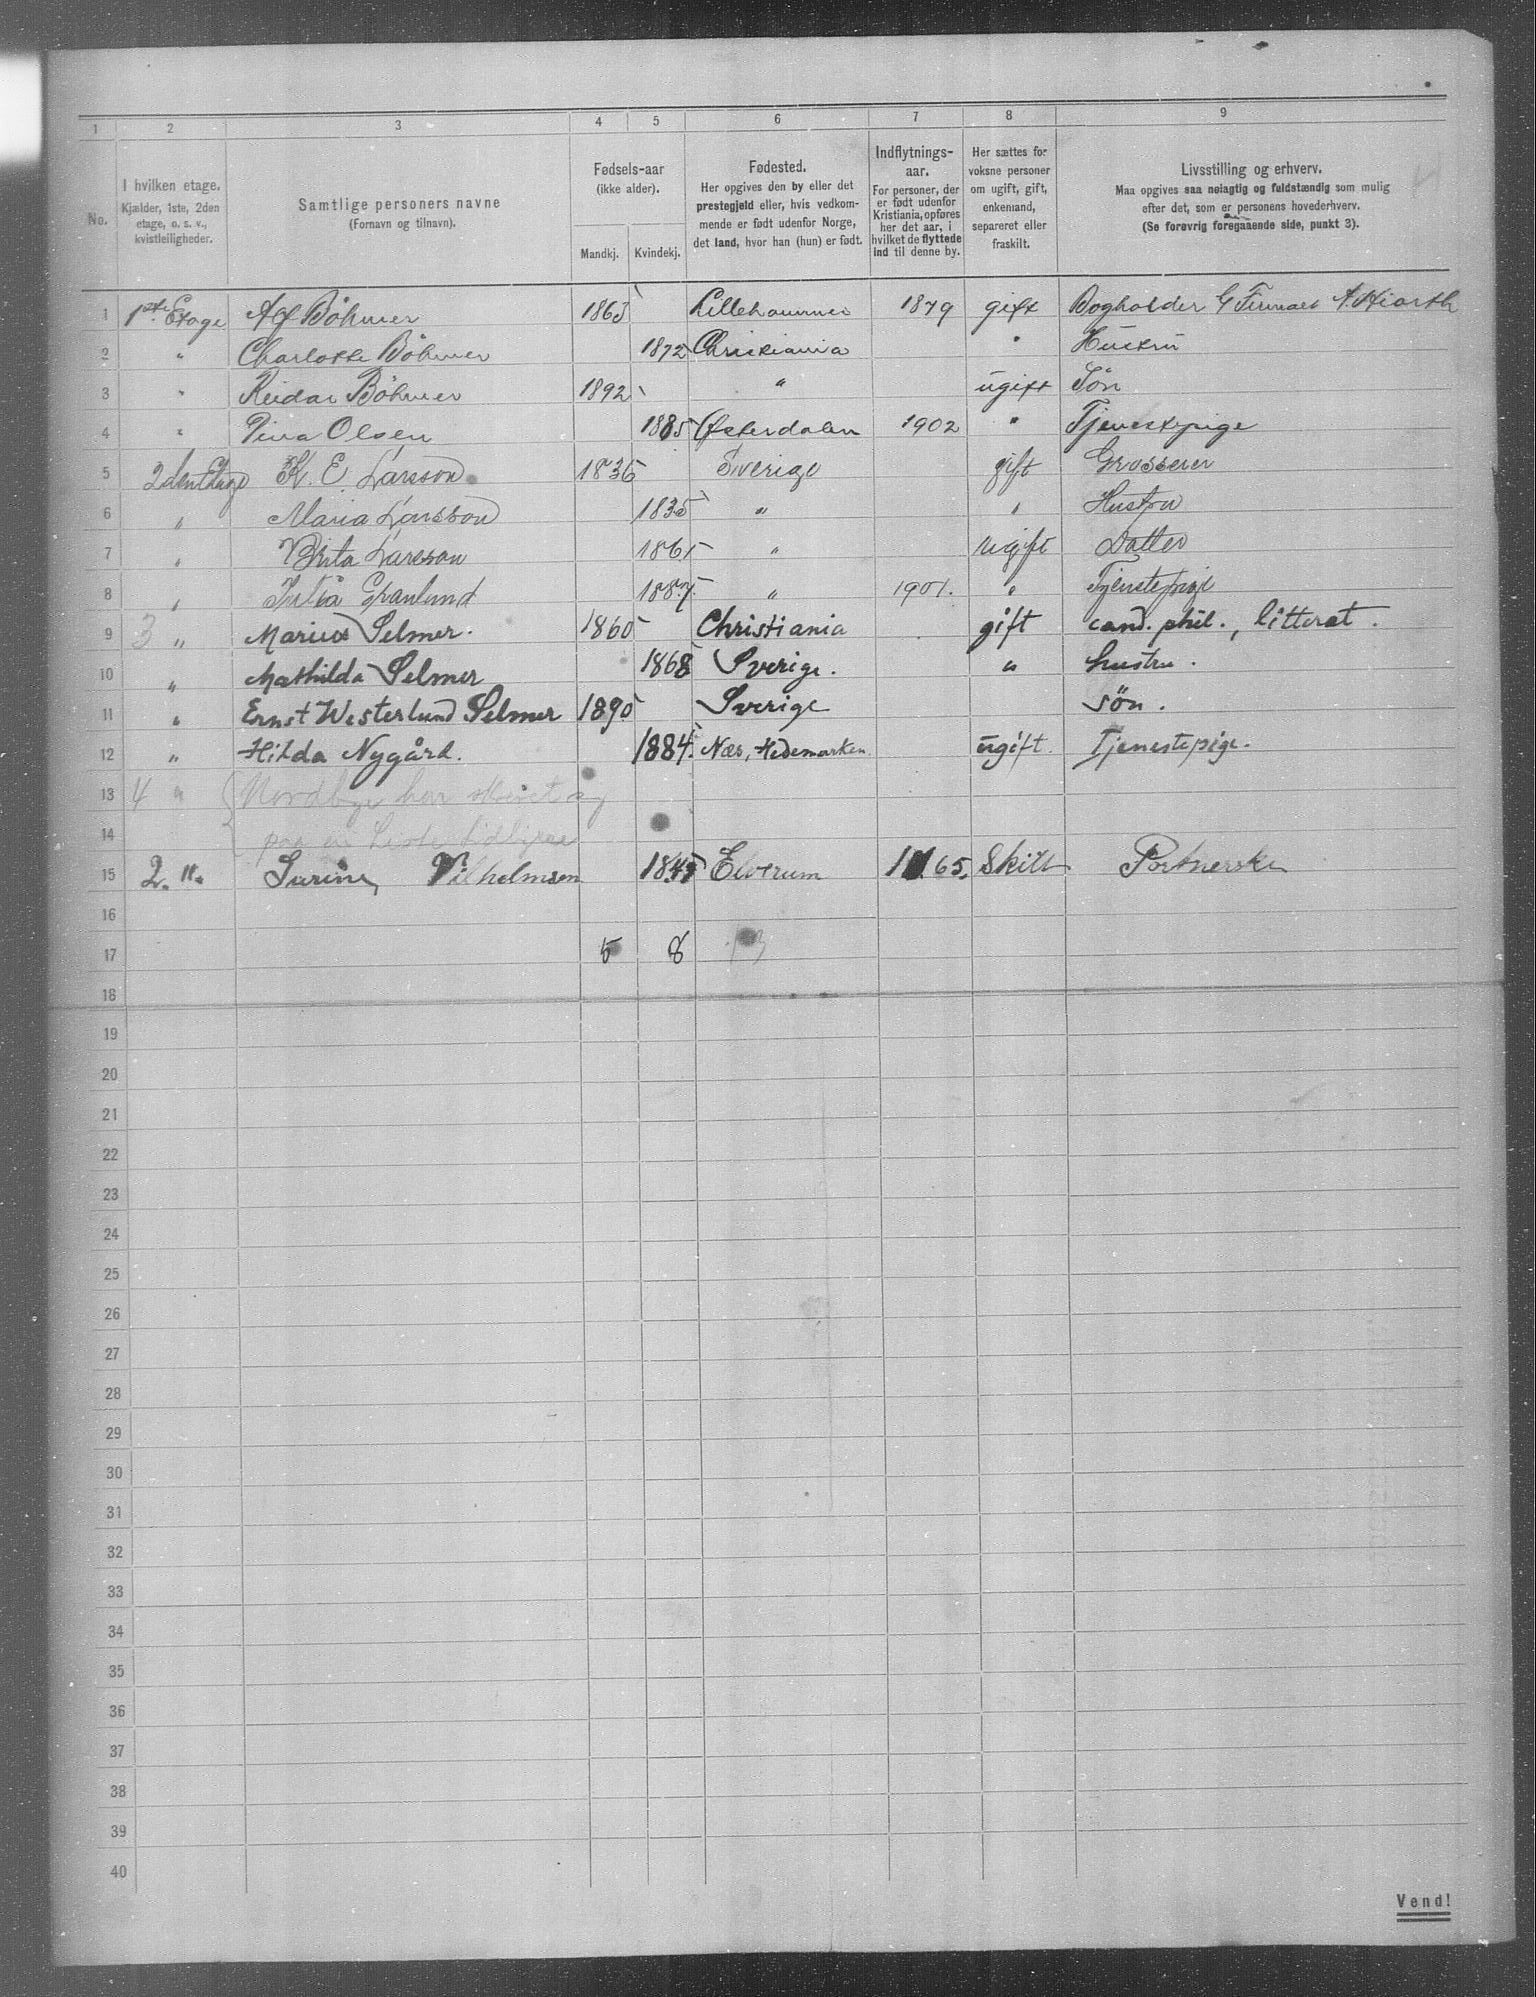 1 2 3 4 5 6 7 8 9
No.
I hvilken etage.
Kjælder, 1ste, 2den
etage, o. s. v.,
kvistleiligheder.
Samtlige personers navne
(Fornavn og tilnavn).
Fødsels-aar
(ikke alder).
Mandkj. Kvindekj.
Fødested.
Her opgives den by eller det
prestegjeld eller, hvis vedkom-
mende er født udenfor Norge,
det land, hvor han (hun) er født.
Indflytnings-
aar.
For personer, der
er født udenfor
Kristiania, opføres
her det aar, i
hvilket de flyttede
ind til denne by.
Her sættes for
voksne personer
om ugift, gift,
enkemand,
separeret eller
fraskilt.
Livsstilling og erhverv.
Maa opgives saa nøiagtig og fuldstændig som mulig
efter det, som er personens hovederhverv.
(Se forøvrig foregaaende side, punkt 3).
1 1ste Etage Böhmer 1863 Lillehammer 1879 gift Bogholder Firmaet A. Hiorth
2 " Charlotte Böhmer 1872 Christiania " Hustru
3 " Reidar Böhmer 1892 " ugift Søn
4 " Olsen 1885 Østerdalen 1902 " Tjenestepige
5 2den Etage K. E. Larsson 1836 Sverige gift Grosserer
6 " Maria Larsson 1835 " " Hustru
7 " Brita Larsson 1865 " ugift Datter
8 " Julia Granlund 1887 " 1901. " Tjenestepige
9 3 " Marius Selmer. 1860 Christiania gift cand. phil., litterat.
10 " Mathilda Selmer 1868 Sverige. " hustru.
11 " Ernst Westerlund Selmer 1890 Sverige søn.
12 " Hilda Nygård. 1884. Næs, Hedemarken. ugift. Tjenestepige.
13 4 " Nordbye har
14
15 2. ". Surine, Vilhelmsen Elverum 65. Skilt Portnerske
16
17 5 8 13
18
19
20
21
22
23
24
25
26
27
28
29
30
31
32
33
34
35
36
37
38
39
40
Vend!